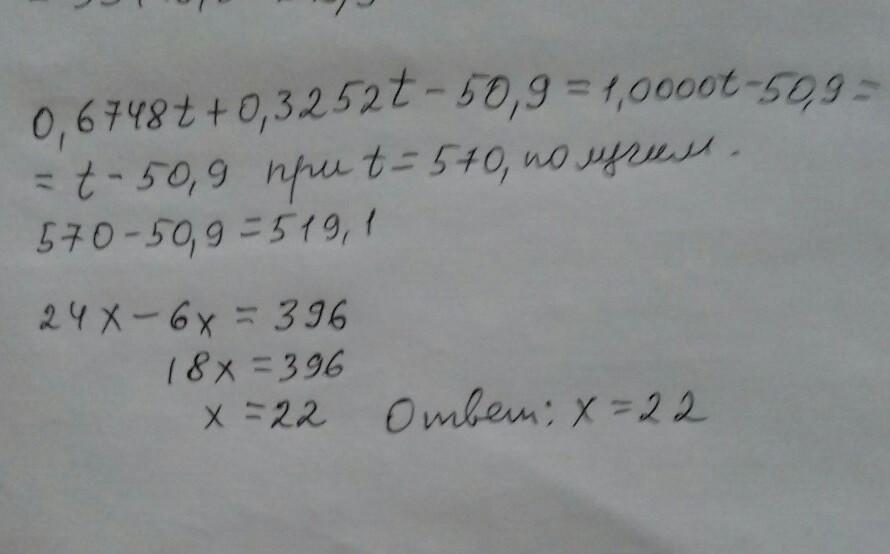 0,6748t + 0,3252t - 50,9 = 1,0000t - 50,9 =
= t - 50,9 при t = 570, получим.
570 - 50,9 = 519,1
24x - 6x = 396
18x = 396
x = 22 Ответ: x = 22